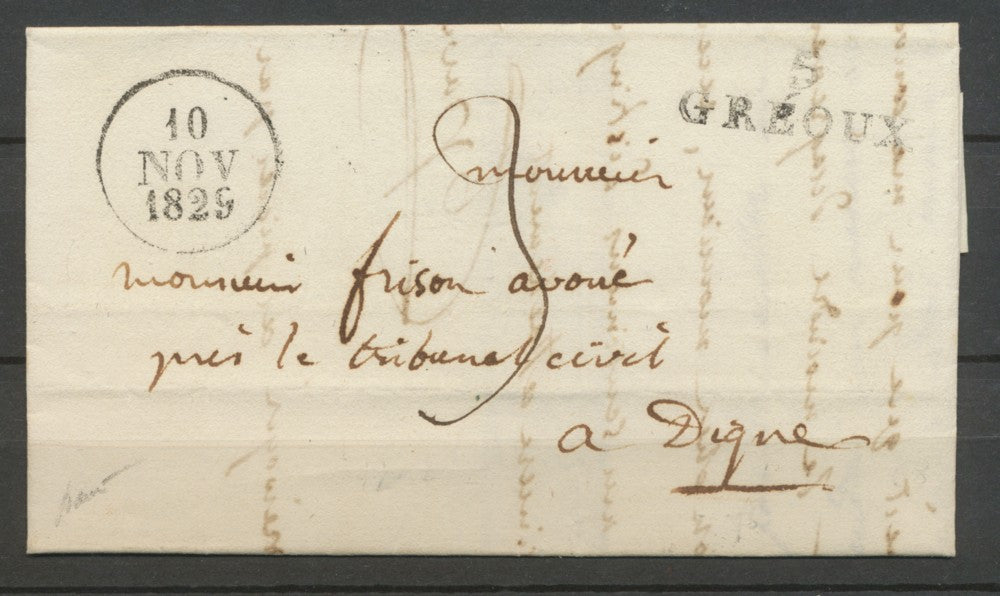 5
GRÉOUX
10
NOV
1829
3
monsieur
monsieur frison avoué
près le tribunal civil
a Digne